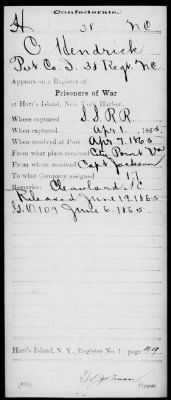 Confederate.
H 38 N C
C Hendrick
Pvt Co. I. 38 Regt. N.C.
Appears on a Register of
Prisoners of War
at Hart's Island, New York Harbor.
Where captured S.S.R.R.
When captured Apr 1, 1865
When received at Post Apr 7, 1865
From what place received City Point Va
From whom received Capt Jackson
To what Company assigned 17
Remarks: Cleaveland, N C
Released June 19. 1865
G.O 109 June 6. 1865.
Hart's Island, N. Y., Register No. 1; page 419
Copyist.